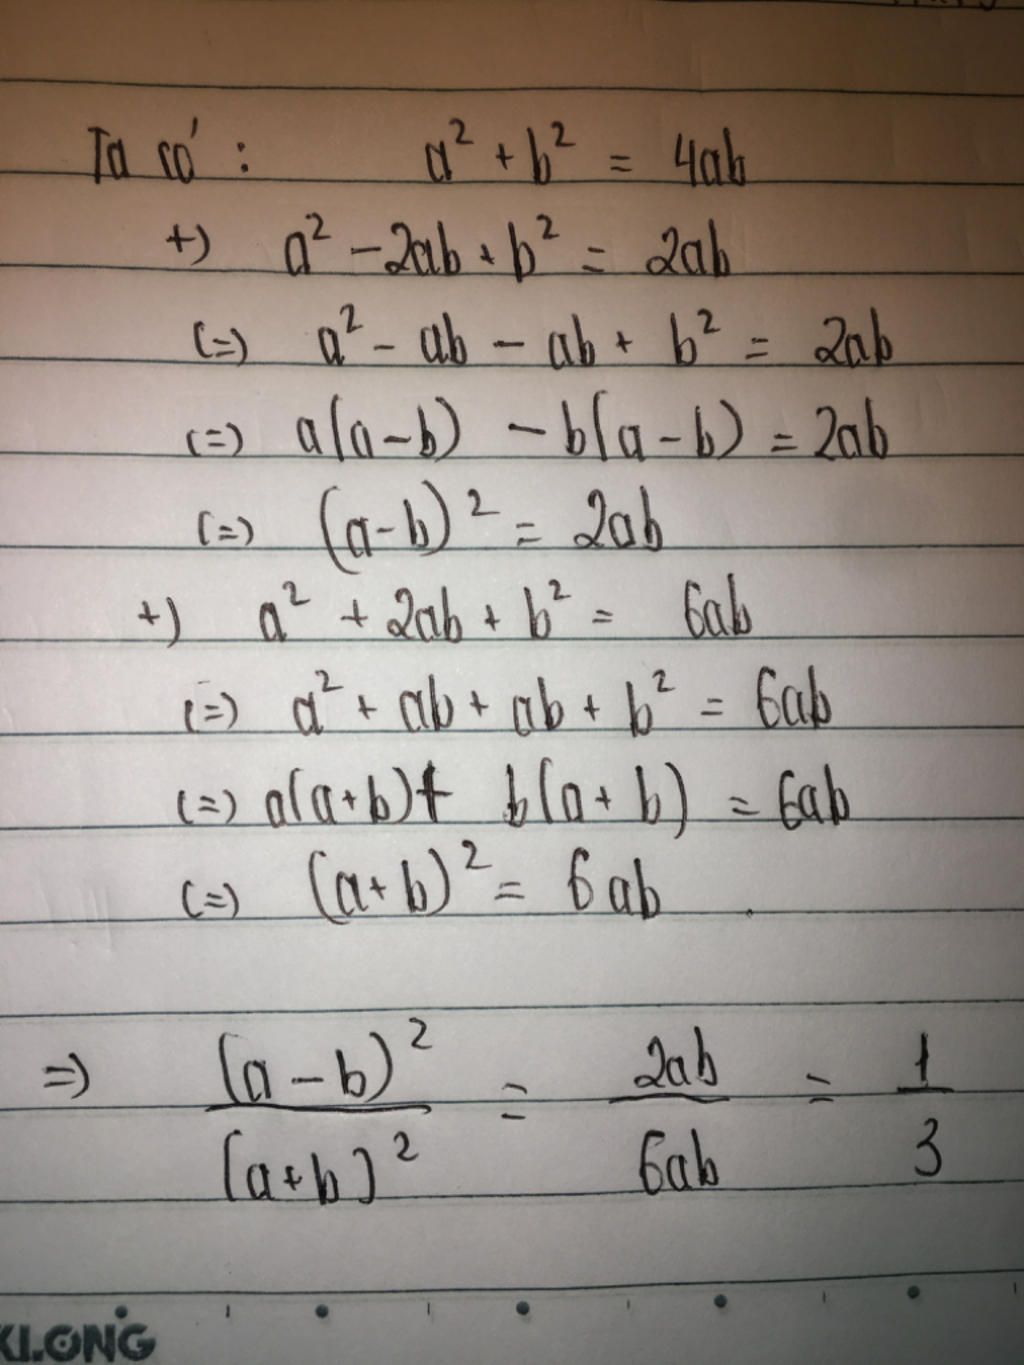 Ta có : a² + b² = 4ab
+) a² - 2ab + b² = 2ab
(=) a² - ab - ab + b² = 2ab
(=) a(a-b) - b(a-b) = 2ab
(=) (a-b)² = 2ab
+) a² + 2ab + b² = 6ab
(=) a² + ab + ab + b² = 6ab
(=) a(a+b)+ b(a+b) = 6ab
(=) (a+b)² = 6ab
=) (a-b)²/(a+b)² = 2ab/6ab = 1/3
KLONG